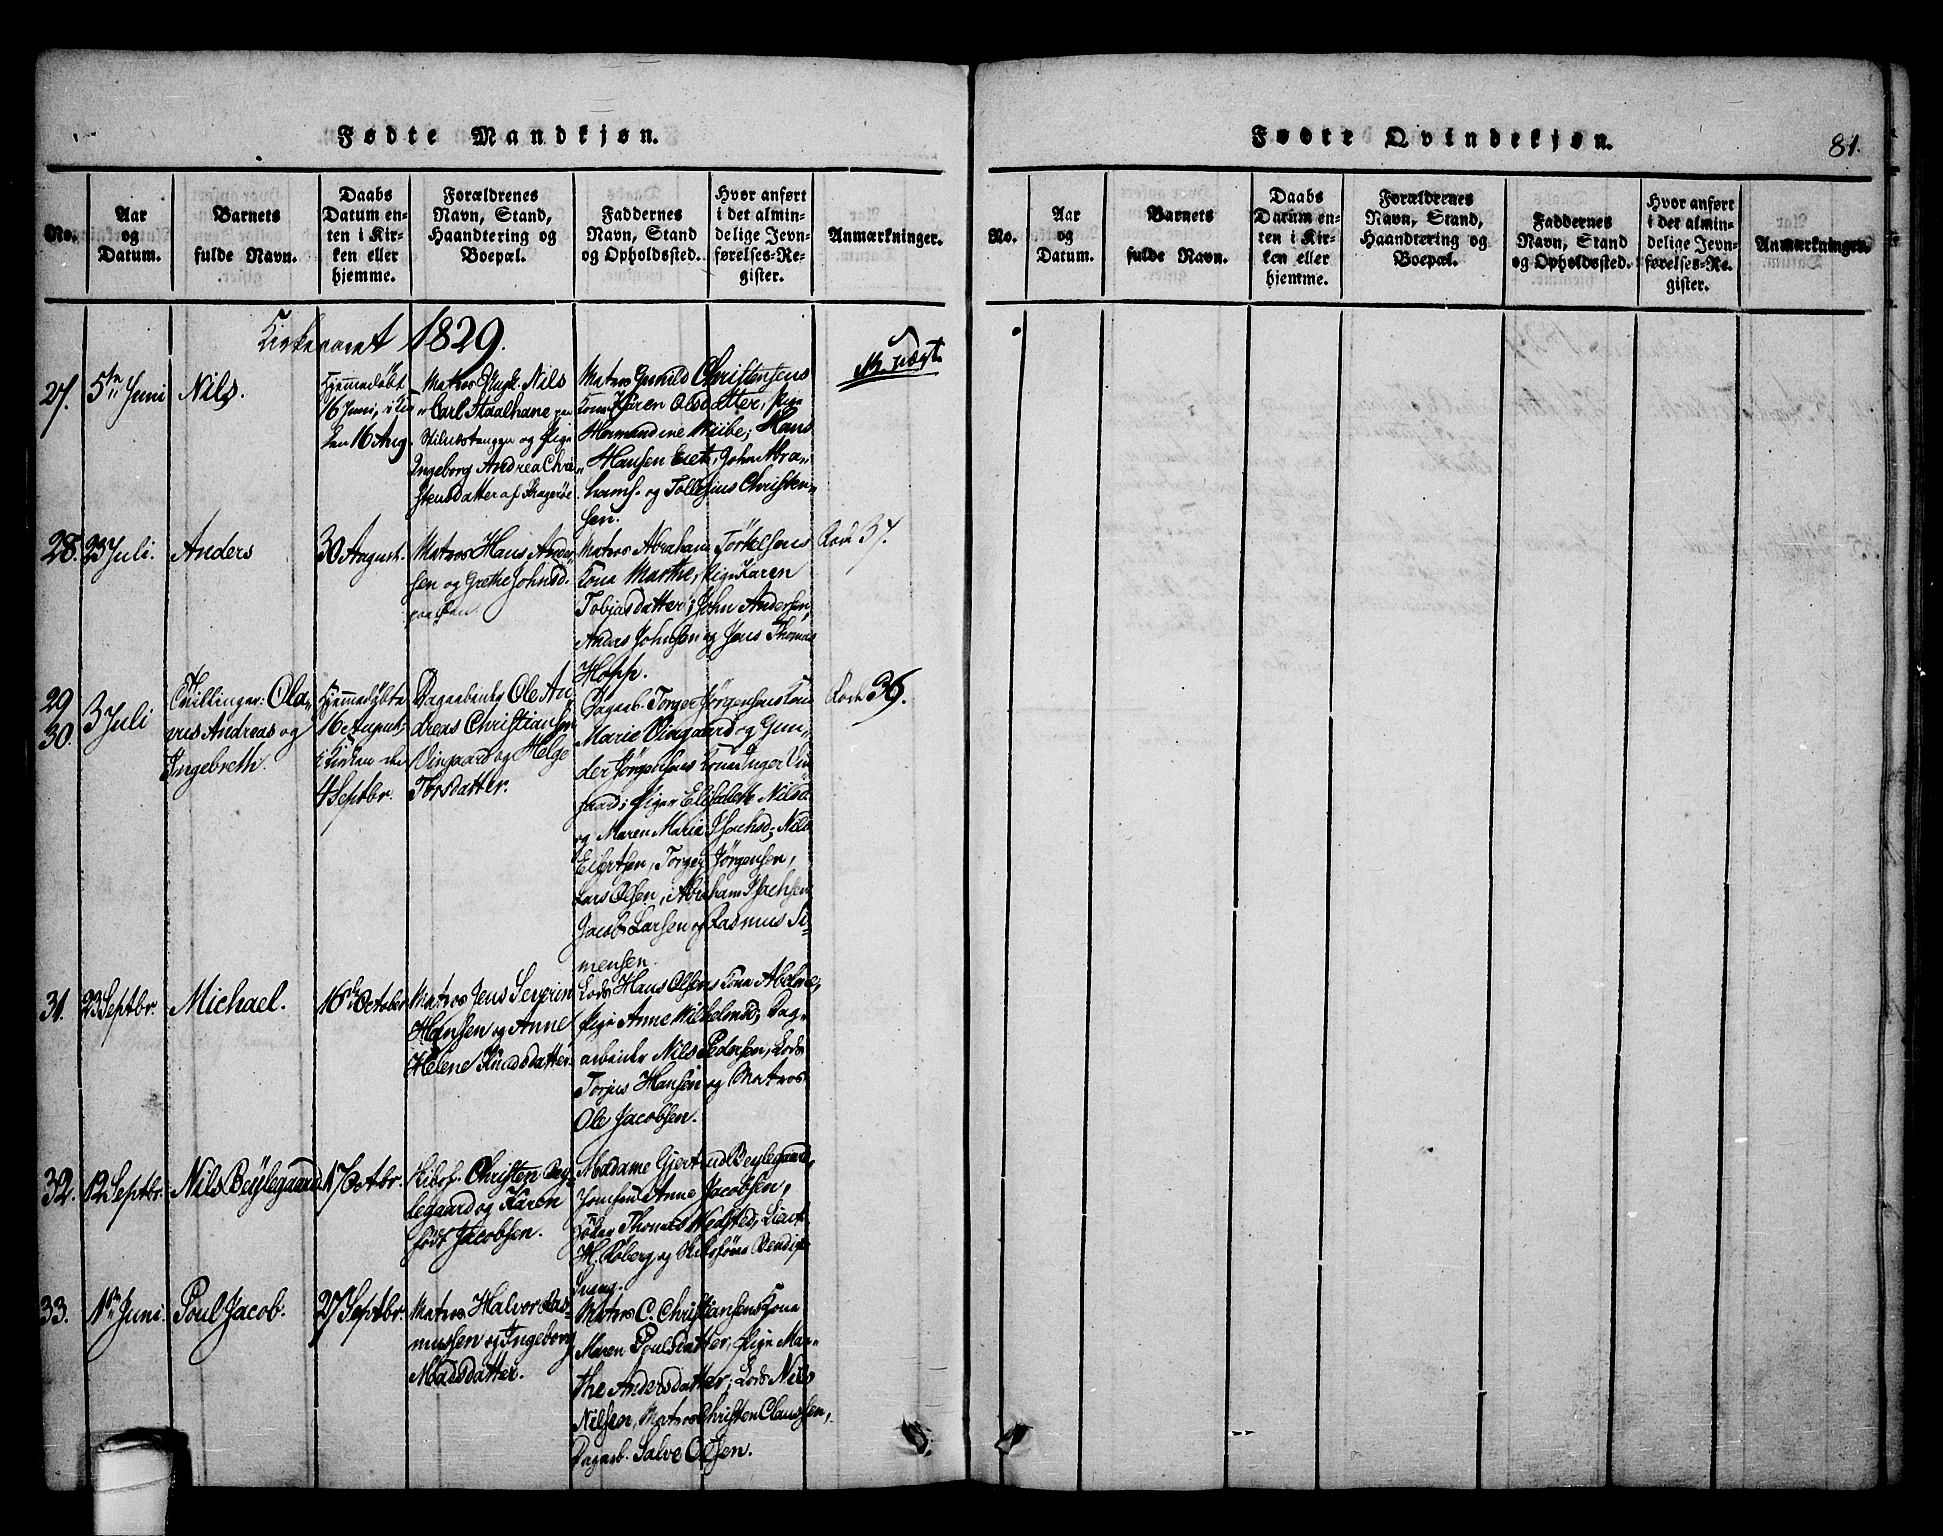 Fødte Mandkjøn.
No.
Aar
og
Datum.
Barnets
fulde Navn.
Daabs
Datum en-
ten i Kir-
ken eller
hjemme.
Forældrenes
Navn, Stand,
Haandtering og
Boepæl.
Faddernes
Navn, Stand
og Opholdssted.
Hvor anført
i det almin-
delige Jevn-
førelses-Re-
gister.
Anmærkninger.
Kirkeaaret 1829.
27.
5te Juni
Nils.
Hjemmedøbt
16 Juni, i Kir-
ken 16 Aug.
Matros Nils
Carl Staalhane paa
og Pige
Ingeborg Andrea Chri-
stensdatter af Kragerøe
Matros Gunild Christensens
Kone Karen Olsdatter, Pige
Hermandine Wiibe; Hans
Hansen Eiet, John Abra-
hams. og Tollesius Christen-
sen.
28.
23 Juli.
Anders
30 August.
Matros Hans Ander-
sen og Grethe Johnsd.
Matros Abraham Torkelsens
Kona Marthe, Pige Karen
Tobiasdatter; John Andersen,
Anders Johnsen og Jens Thomas
Hopp.
Rode 37.
29
30.
3 Juli
Tvillinger: Ola-
vus Andreas og
Ingebreth.
Hjemmedøbte
16 August,
i Kirken den
4 Septbr.
Dagarbeider Ole An-
dreas Christiansen
Viingaard og Helge
Torsdatter.
Dagarb. Torger Jørgensens Kone
Marie Viingaard og Gun-
der Jørgensens Kone Inger Vin-
gaard; Piger Elisabeth Nilsd.
og Maren Maria Isachsd; Nils
Eilertsen, Torger Jørgensen,
Lars Olsen, Abraham Isachsen
Jacob Larsen og Rasmus Si-
mensen.
Rode 36.
31.
23 Septbr.
Michael.
16de October
Matros Jens Severin
Hansen og Anne
Helene Knudsdatter
Lods Hans Olsens Kona Abelone,
Pige Anne Wilhelmsd, Dag-
arbeider Nils Pedersen, Lods
Torjus Hansen og Matros
Ole Jacobsen.
32.
12 Septbr.
Nils Beylegaard
17 Octbr.
Christen Bey-
legaard og Karen
født Jacobsen.
Madame Gjertrud Beylegaard,
Jomfru Anne Jacobsen,
Thomas Wedsted,
H. Roberg og
33.
1te Juni.
Poul Jacob.
27 Septbr.
Matros Halvor Ras-
mussen og Ingeborg
Madsdatter.
Matros C. Christiansens Kona
Maren Poulsdatter, Pige Mar-
the Andersdatter; Lods Nils
Nilsen, Matros Christen Claussen,
Dagarb. Salve Olsen.
Fødte Qvindekjøn.
81.
No.
Aar
og
Datum.
Barnets
fulde Navn.
Daabs
Datum en-
ten i Kir-
ken eller
hjemme.
Forældrenes
Navn, Stand,
Haandtering og
Boepæl.
Faddernes
Navn, Stand
og Opholdssted.
Hvor anført
i det almin-
delige Jevn-
førelses-Re-
gister.
Anmærkninger.